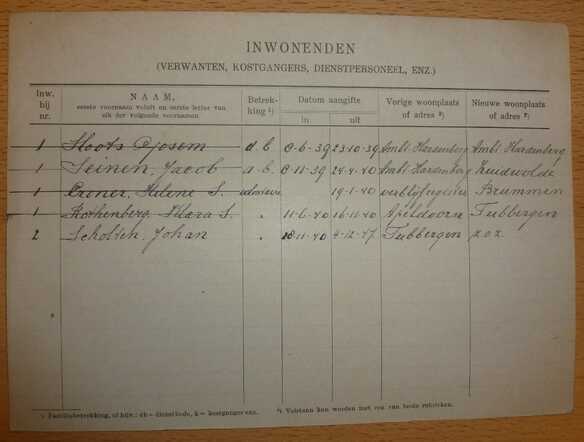 INWONENDEN
(VERWANTEN, KOSTGANGERS, DIENSTPERSONEEL, ENZ.)
Inw. bij nr. NAAM, eerste voornaam voluit en eerste letter van elk der volgende voornamen Betrekking ¹) Datum aangifte in uit Vorige woonplaats of adres ²) Nieuwe woonplaats of adres ²)
1 Sloots d.b. 8-6-39 23-10-39 Ambt Hardenberg Ambt Hardenberg
1 Seinen, Jacob d.b. 8-11-39 24-4-40 Ambt Hardenberg Zuidwolde
1 Croner, Helene S. 19-1-40 Brummen
1 Rothenberg, Klara S. " 11-6-40 16-11-40 Apeldoorn Tubbergen
2 Scholten, Johan " 18-11-40 4-12-47 Tubbergen z.o.z.
¹) Familiebetrekking, of bijw.: db = dienstbode, k = kostganger enz. ²) Volstaan kan worden met een van beide rubrieken.